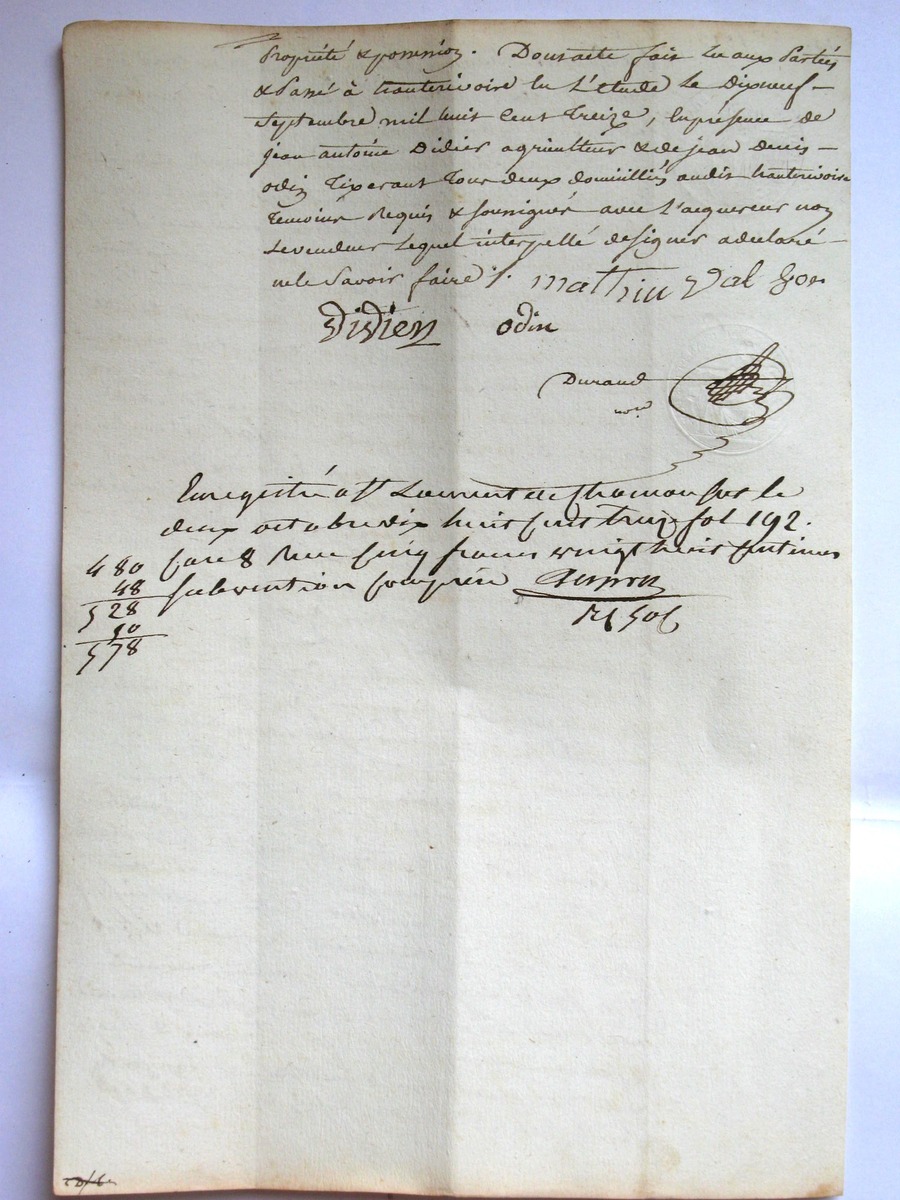 Propriété & possession. Dont acte fait lu aux Parties
& Passé à hauterivoire en L'etude Le Dixneuf
Septembre mil huit Cent Treize, En présence de
jean antoine Didier agriculteur & de jean Denis
odin Tixerant Tous deux domiciliés audit hauterivoire
Temoins Requis & soussignés avec L'acquereur non
Le vendeur Lequel interpellé de signer a declaré
ne le Savoir faire /.
Didier odin
Durand
nore
Enregistré a St Laurent de Chamousset le
deux octobre dix huit cent treize fol 192.
case 8 Reçu cinq francs vingt huit centimes
subvention comprise
4 80
48
5 28
50
5 78